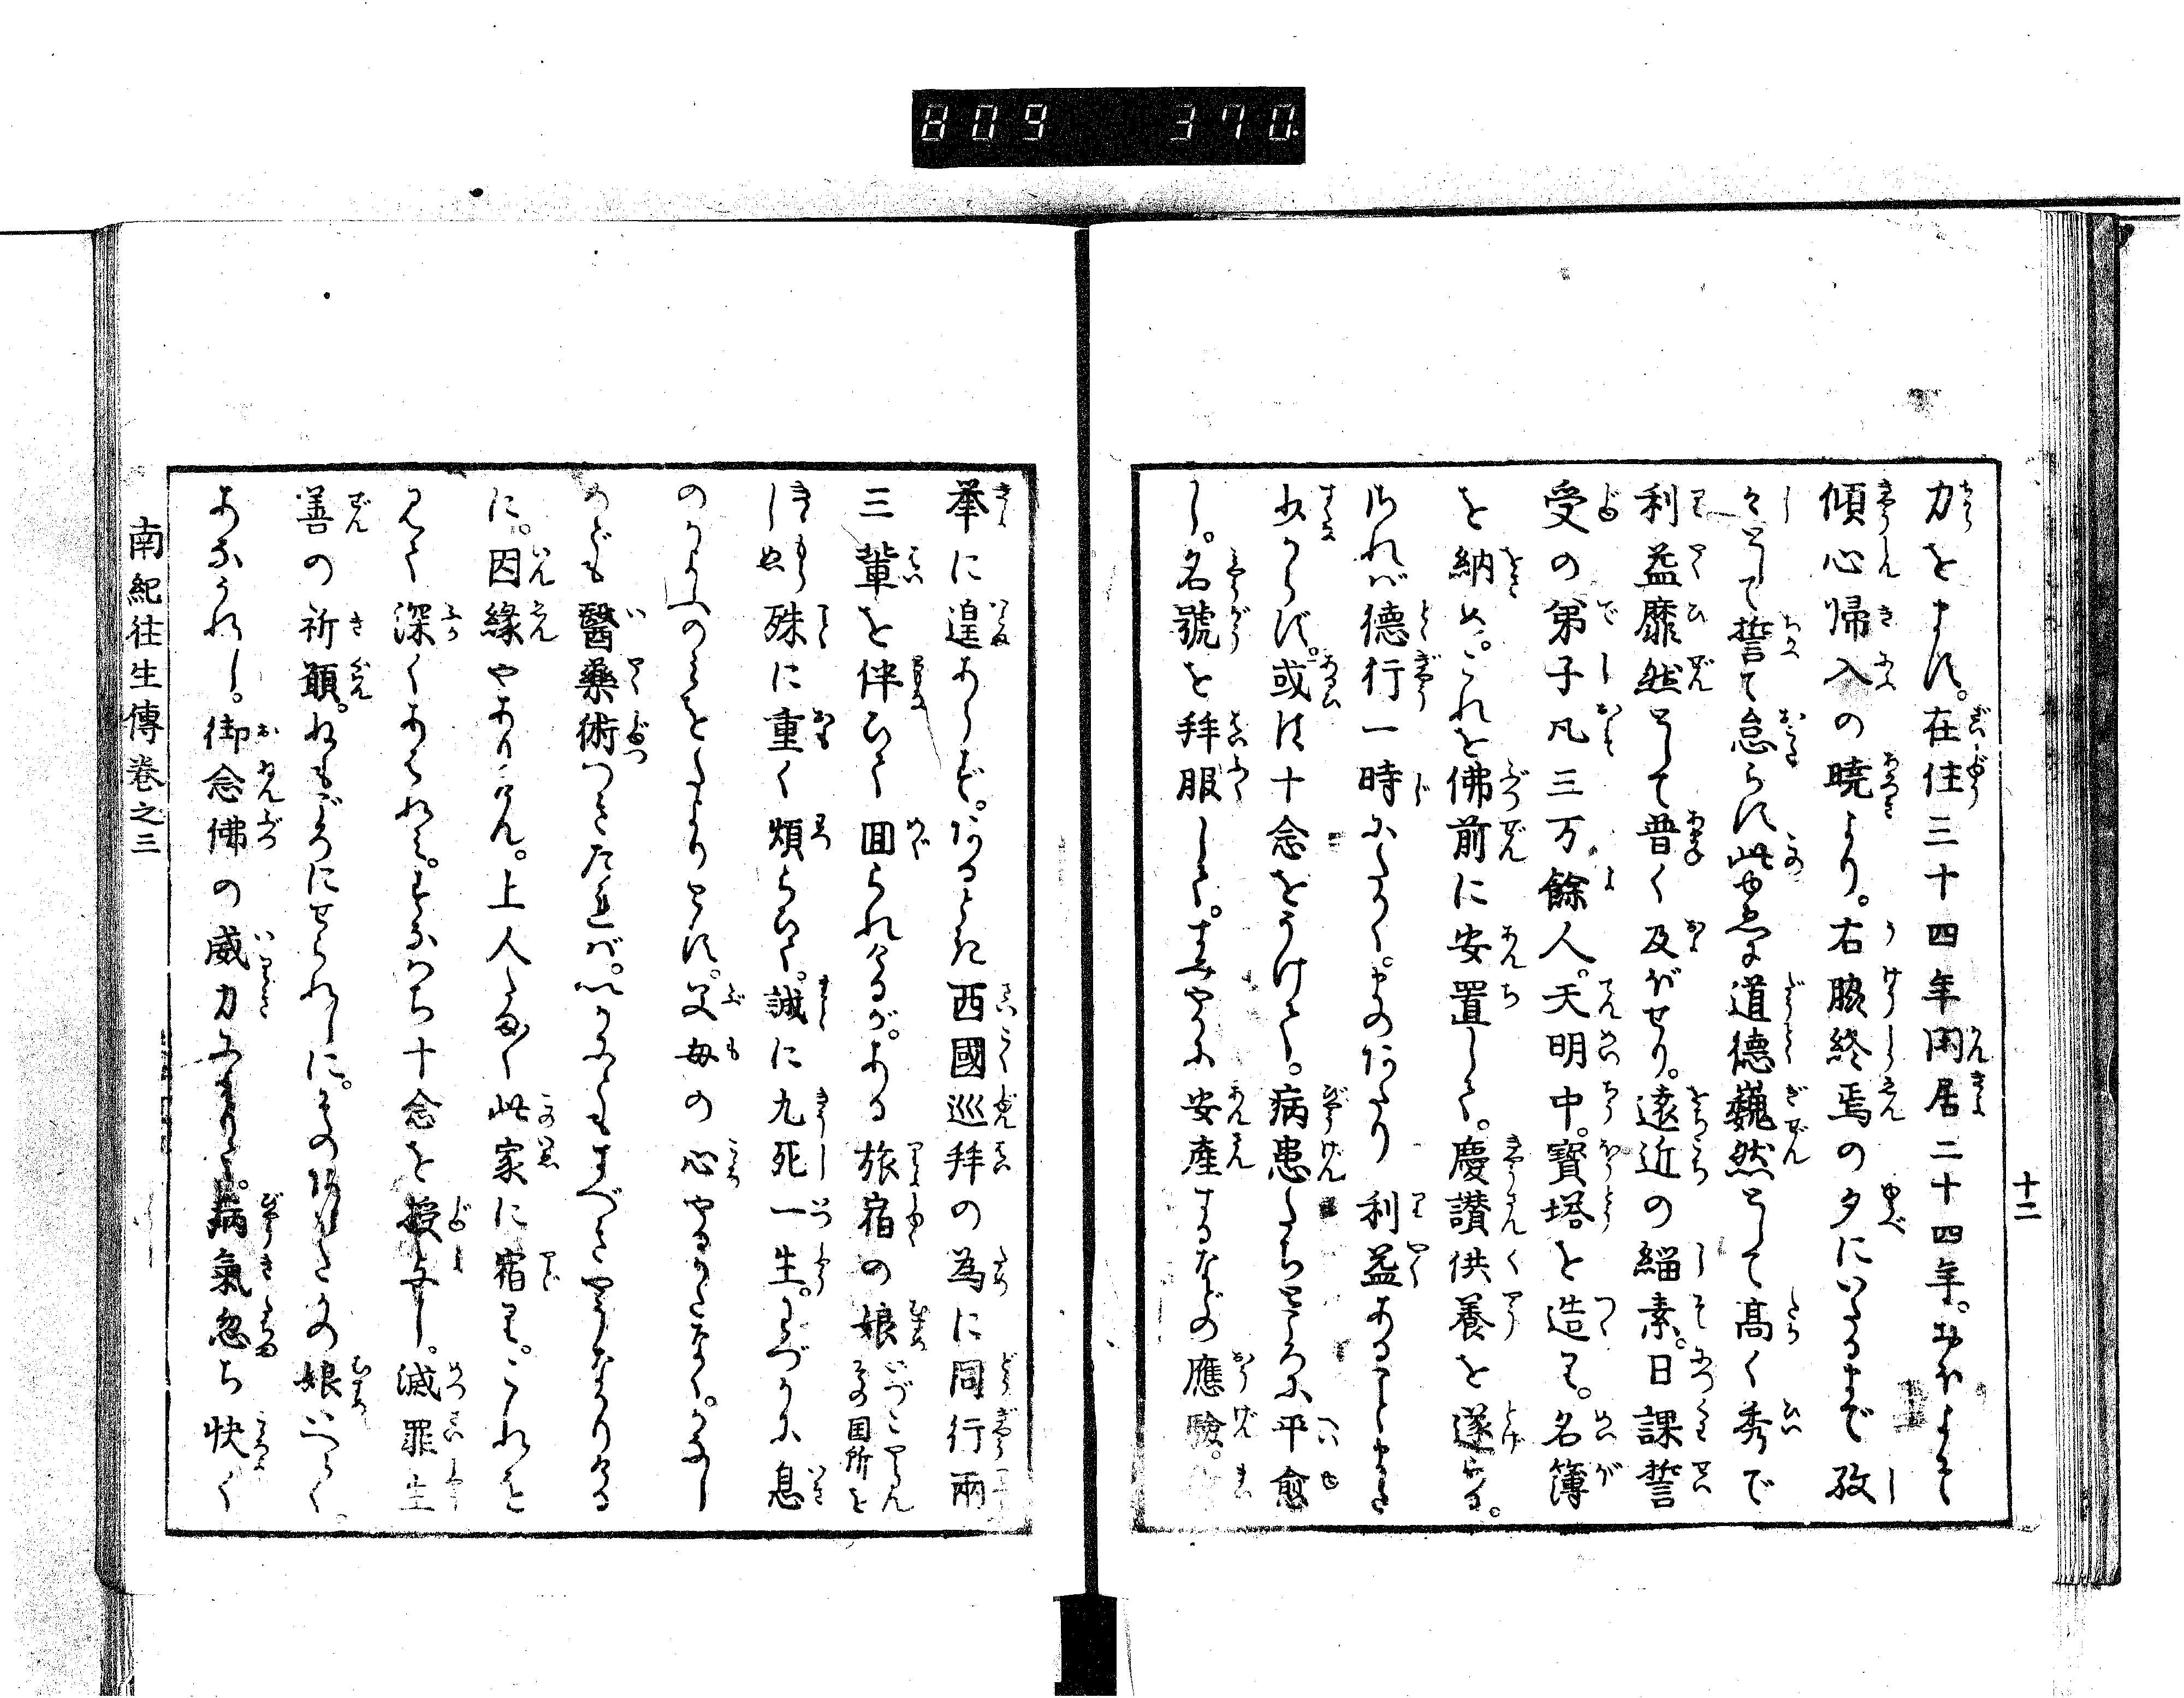 809 370
十二
力をます。在住三十四年閑居二十四年。おほよそ
傾心帰入の暁より。右脇終焉の夕にいたるまで孜
々として誓て怠らす此ゆゑに道德巍然として高く秀で
利益靡然として普く及ぼせり。遠近の緇素。日課誓
受の第子凡三万餘人。天明中。寶塔を造り。名簿
を納め。これを佛前に安置して。慶讃供養を遂らる。
されば德行一時にたかく。そのほとり利益あること
少からず。或は十念をうけて。病患たちところに平愈
し。名號を拜服して。すみやかに安產するなどの應驗。
挙に遑あらず。あるとき西國巡拜の為に同行兩
三輩を伴ひて回られけるが。ある旅宿の娘いづこやらんその国所を
しらぬ殊に重く煩らひて。誠に九死一生。わづかに息
のかよふのみをたよりとす。父母の心やるかたなく。かなし
めども醫藥術つきたれば。いかにともすべきやうなかりける
に。因緣やありけん。上人たまたま此家に宿り。これを
見て深くあはれみ。すなはち十念を授与し。滅罪生
善の祈願。ねもごろにせられしに。そのかの娘
あなうれし。御念佛の威力によりて。病氣忽ち快く
南紀往生傳卷之三